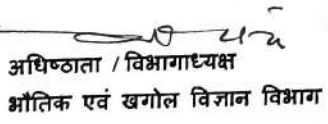 अधिष्ठाता / विभागाध्यक्ष
भौतिक एवं खगोल विज्ञान विभाग